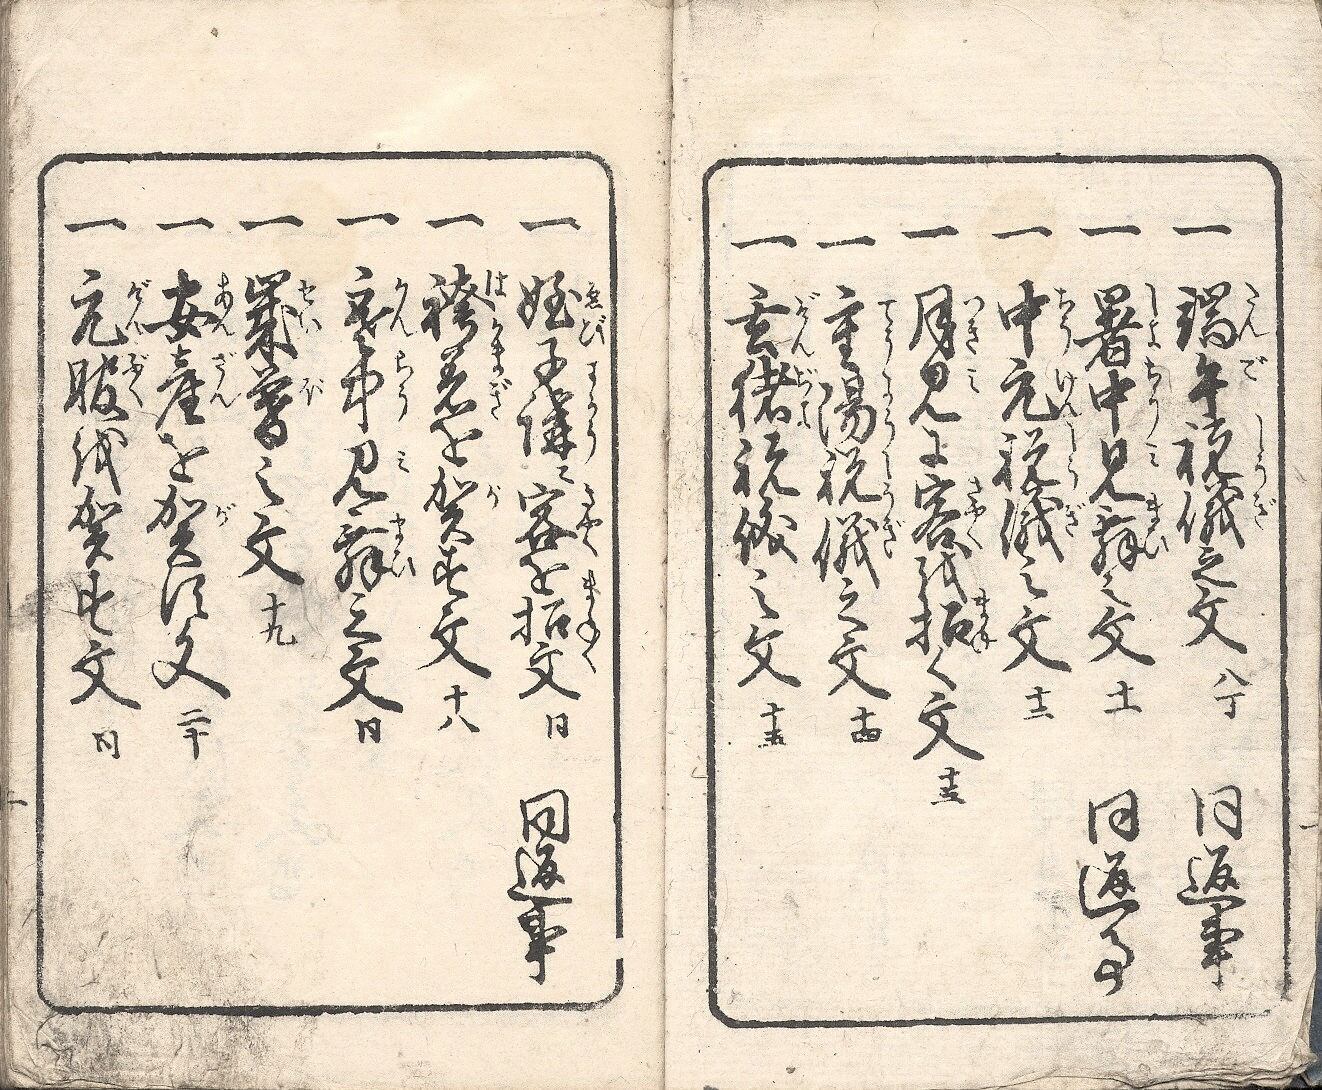 一 端午祝儀之文 八丁 同返事
一 暑中見舞之文 十一 同返事
一 中元祝儀之文 十二
一 月見に客を招く文 十三
一 重陽祝儀之文 十四
一 玄猪祝儀之文 十五
一 蛭子講に客を招文 同 同返事
一 袴着を賀す文 十八
一 寒中見舞之文 同
一 歳暮之文 十九
一 安産を賀す文 二十
一 元服を賀す文 同